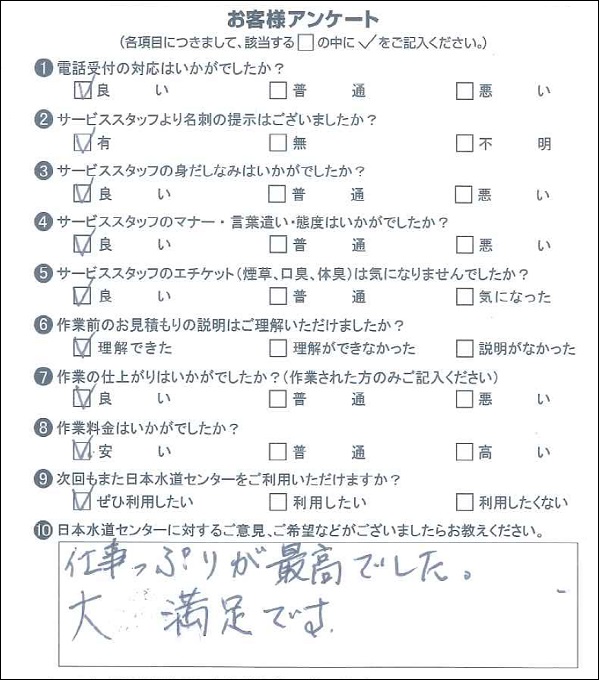 お客様アンケート
(各項目につきまして、該当する□の中に✓をご記入ください。)
❶ 電話受付の対応はいかがでしたか?
☑良い □普通 □悪い
❷ サービススタッフより名刺の提示はございましたか?
☑有 □無 □不明
❸ サービススタッフの身だしなみはいかがでしたか?
☑良い □普通 □悪い
❹ サービススタッフのマナー・言葉遣い・態度はいかがでしたか?
☑良い □普通 □悪い
❺ サービススタッフのエチケット(煙草、口臭、体臭)は気になりませんでしたか?
☑良い □普通 □気になった
❻ 作業前のお見積もりの説明はご理解いただけましたか?
☑理解できた □理解ができなかった □説明がなかった
❼ 作業の仕上がりはいかがでしたか?(作業された方のみご記入ください)
☑良い □普通 □悪い
❽ 作業料金はいかがでしたか?
☑安い □普通 □高い
❾ 次回もまた日本水道センターをご利用いただけますか?
☑ぜひ利用したい □利用したい □利用したくない
❿ 日本水道センターに対するご意見、ご希望などがございましたらお教えください。
仕事っぷりが最高でした。
大 満足です.